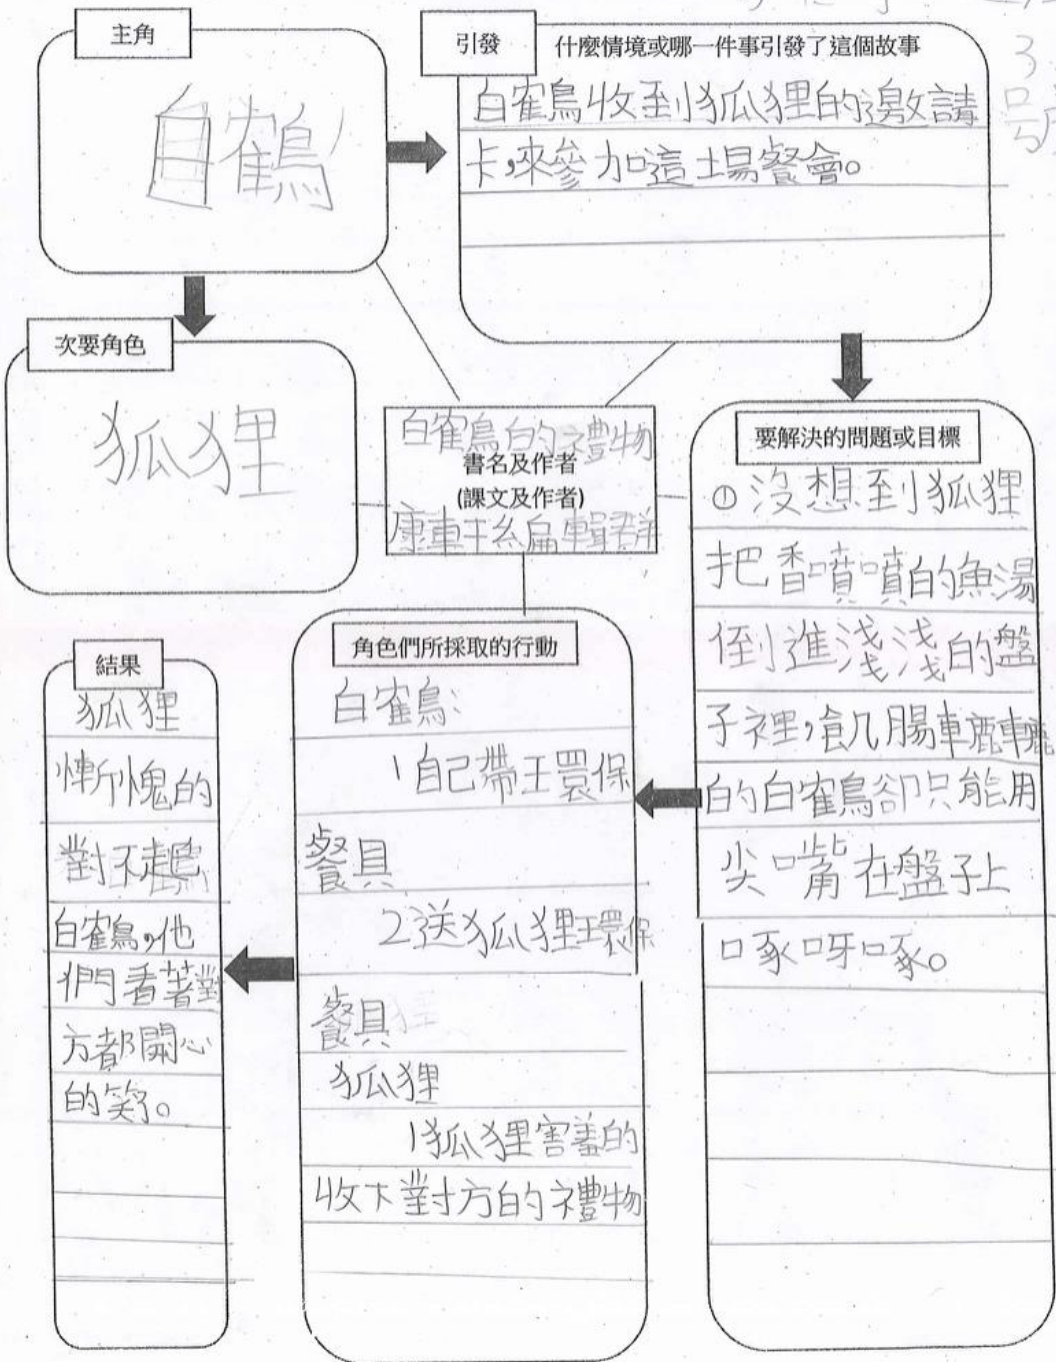 3
号
主角
白鶴
引發
什麼情境或哪一件事引發了這個故事
白鶴收到狐狸的邀請
卡,來參加這場餐會。
次要角色
狐狸
白鶴的禮物
書名及作者
(課文及作者)
康軒編輯群
要解決的問題或目標
①沒想到狐狸
把香噴噴的魚湯
倒進淺淺的盤
子裡,飢腸轆轆
的白鶴卻只能用
尖嘴在盤子上
啄呀啄。
角色們所採取的行動
白鶴:
1自己帶環保
餐具
2送狐狸環保
餐具
狐狸
1狐狸害羞的
收下對方的禮物
結果
狐狸
慚愧的
對不起
白鶴,他
們看著對
方都開心
的笑了。